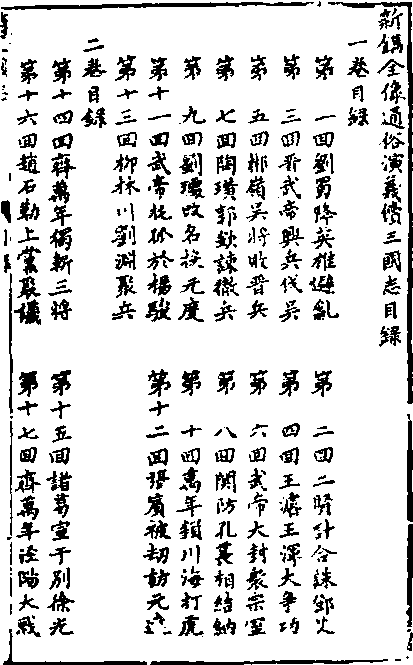 新鐫全像通俗演義續三國志目錄
一卷目錄
第一回劉蜀降英雄避亂
第二回二賢計合誅鄧艾
第三回晉武帝興兵伐吳
第四回王濬王渾大爭功
第五回郴嶺吳將敗晉兵
第六回武帝大封衆宗室
第七回陶璜郭欽諫撤兵
第八回關防孔萇相結納
第九回劉璩改名投元度
第十回萬年潁川海打虎
第十一回武帝托孤於楊駿
第十二回張賓被刼訪元達
第十三回柳林川劉淵聚兵
二卷目錄
第十四回齊萬年獨斬三將
第十五回諸葛宣于別徐光
第十六回趙石勒上黨聚議
第十七回齊萬年涇陽大戰